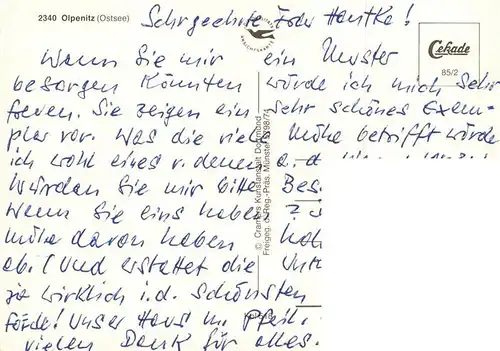 2340 Olpenitz (Ostsee)
Sehr geehrte Frau Hantke!
Cekade
85/2
Wenn Sie mir ein Muster
besorgen könnten würde ich mich sehr
freuen. Sie zeigen ein sehr schönes Exem=
plar vor. Was die viele Mühe betrifft würde
ich wohl eines v. denen
Würden Sie mir bitte Bes.
Wenn Sie eins haben ?
Mühe davon haben
ab. (Und erstattet die
ja wirklich i.d. Schönsten
Förde! Unser Haus in
vielen Dank für alles.
© Cramers Kunstanstalt Dortmund
Freigeg. d. Reg.-Präs. Münster